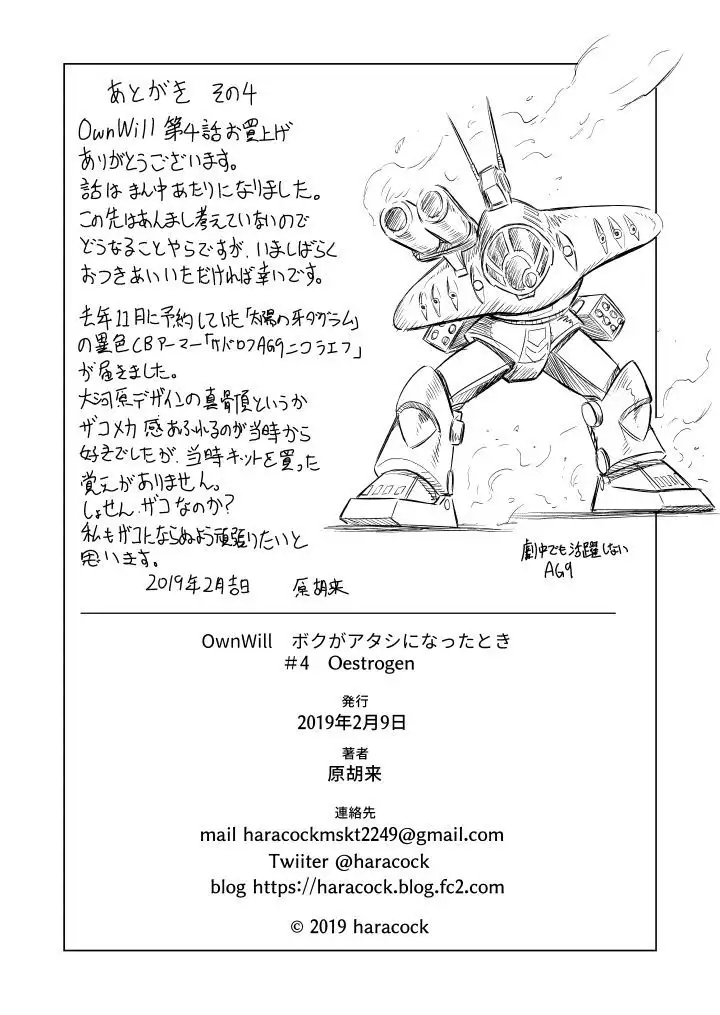 あとがき その4
OwnWill 第4話お買上げ
ありがとうございます。
話は まん中あたりになりました。
この先はあんまし考えていないので
どうなることやらですが、いましばらく
おつきあいいただければ幸いです。
去年11月に予約していた「太陽の牙ダグラム」
の異色CBアーマー「ケバロフAG9ニコラエフ」
が届きました。
大河原デザインの真骨頂というか
ザコメカ感あふれるのが当時から
好きでしたが、当時キットを買った
覚えがありません。
しょせん、ザコなのか?
私もザコにならぬよう頑張りたいと
思います。
2019年2月吉日 原胡来
劇中でも活躍しない
AG9
OwnWill ボクがアタシになったとき
#4 Oestrogen
発行
2019年2月9日
著者
原胡来
連絡先
mail haracockmskt2249@gmail.com
Twiiter @haracock
blog https://haracock.blog.fc2.com
© 2019 haracock